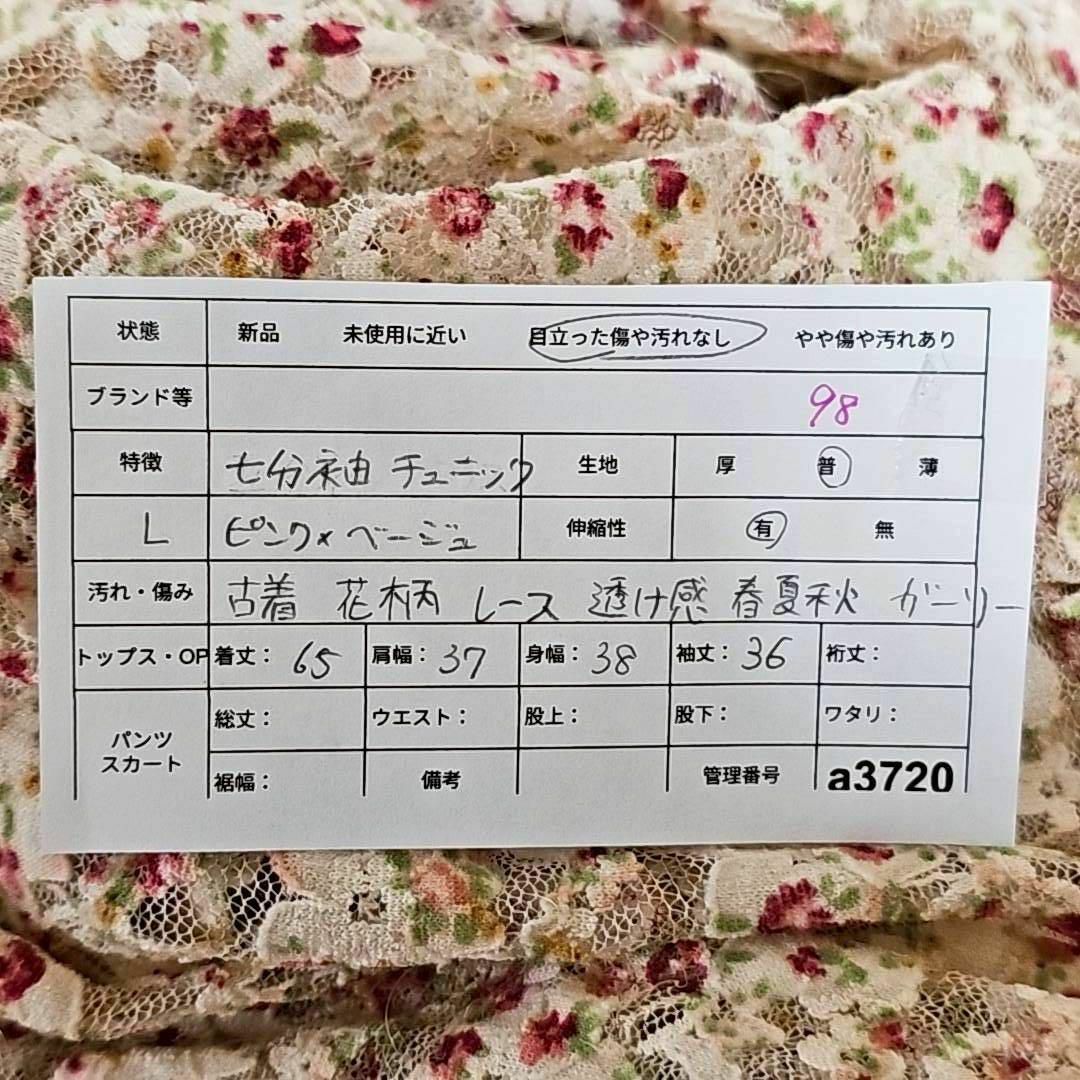 状態 新品 未使用に近い 目立った傷や汚れなし やや傷や汚れあり
ブランド等 98
特徴 七分袖 チュニック 生地 厚 普 薄
L ピンク×ベージュ 伸縮性 有 無
汚れ・傷み 古着 花柄 レース 透け感 春夏秋 ガーリー
トップス・OP 着丈：65 肩幅：37 身幅：38 袖丈：36 裄丈：
パンツ スカート 総丈： ウエスト： 股上： 股下： ワタリ：
裾幅： 備考 管理番号 a3720